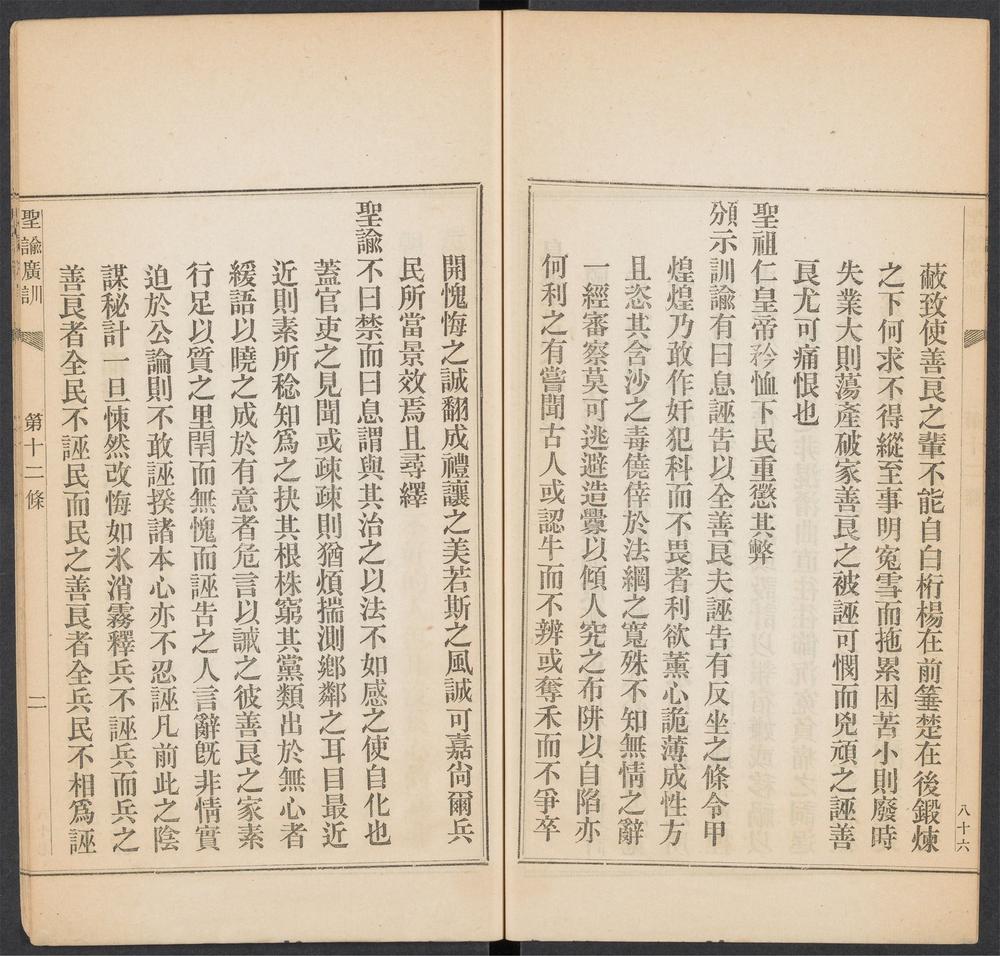 八十六
蔽致使善良之輩不能自白桁楊在前箠楚在後鍛煉
之下何求不得縱至事明冤雪而拖累困苦小則廢時
失業大則蕩產破家善良之被誣可憫而兇頑之誣善
良尤可痛恨也
聖祖仁皇帝矜恤下民重懲其弊
頒示訓諭有曰息誣告以全善良夫誣告有反坐之條令甲
煌煌乃敢作奸犯科而不畏者利欲薰心詭薄成性方
且恣其含沙之毒僥倖於法網之寬殊不知無情之辭
一經審察莫可逃避造釁以傾人究之布阱以自陷亦
何利之有嘗聞古人或認牛而不辨或奪禾而不爭卒
開愧悔之誠翻成禮讓之美若斯之風誠可嘉尚爾兵
民所當景效焉且尋繹
聖諭不曰禁而曰息謂與其治之以法不如感之使自化也
蓋官吏之見聞或疎疎則猶煩揣測鄉鄰之耳目最近
近則素所稔知為之抉其根株窮其黨類出於無心者
緩語以曉之成於有意者危言以誡之彼善良之家素
行足以質之里閈而無愧而誣告之人言辭既非情實
迫於公論則不敢誣揆諸本心亦不忍誣凡前此之陰
謀秘計一旦悚然改悔如氷消霧釋兵不誣兵而兵之
善良者全民不誣民而民之善良者全兵民不相為誣
聖諭廣訓
第十二條
二